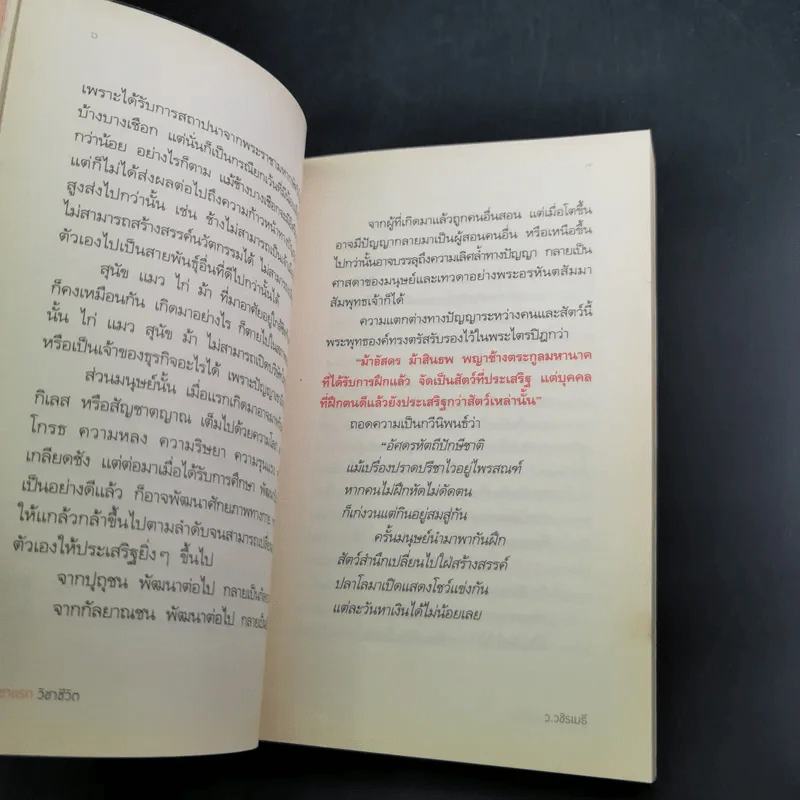 ๖
เพราะได้รับการสถาปนาจากพระราชามหากษัตริย์
บ้างบางเชือก แต่นั่นก็เป็นกรณียกเว้นที่มีน้อย
กว่าน้อย อย่างไรก็ตาม แม้ช้างบางเชือกจะมี
แต่ก็ไม่ได้ส่งผลต่อไปถึงความก้าวหน้าทาง
สูงส่งไปกว่านั้น เช่น ช้างไม่สามารถเป็น
ไม่สามารถสร้างสรรค์นวัตกรรมได้ ไม่สามาร
ตัวเองไปเป็นสายพันธุ์อื่นที่ดีไปกว่านั้นได้
สุนัข แมว ไก่ ม้า ที่มาอาศัยอยู่ใกล้
ก็คงเหมือนกัน เกิดมาอย่างไร ก็ตายไปใน
นั้น ไก่ แมว สุนัข ม้า ไม่สามารถเปิดบริษัท
หรือเป็นเจ้าของธุรกิจอะไรได้ เพราะปัญญา
ส่วนมนุษย์นั้น เมื่อแรกเกิดมาอาจ
กิเลส หรือสัญชาตญาณ เต็มไปด้วยความโลภ
โกรธ ความหลง ความริษยา ความรุนแรง
เกลียดชัง แต่ต่อมาเมื่อได้รับการศึกษา พัฒนา
เป็นอย่างดีแล้ว ก็อาจพัฒนาศักยภาพทางกาย
ให้แกล้วกล้าขึ้นไปตามลำดับจนสามารถเปลี่ยน
ตัวเองให้ประเสริฐยิ่งๆ ขึ้นไป
จากปุถุชน พัฒนาต่อไป กลายเป็นกัลยา
จากกัลยาณชน พัฒนาต่อไป กลายเป็น
วิชาชีวิต
จากผู้ที่เกิดมาแล้วถูกคนอื่นสอน แต่เมื่อโตขึ้น
อาจมีปัญญากลายมาเป็นผู้สอนคนอื่น หรือเหนือขึ้น
ไปกว่านั้นอาจบรรลุถึงความเลิศล้ำทางปัญญา กลายเป็น
ศาสดาของมนุษย์และเทวดาอย่างพระอรหันตสัมมา
สัมพุทธเจ้าก็ได้
ความแตกต่างทางปัญญาระหว่างคนและสัตว์นี้
พระพุทธองค์ทรงตรัสรับรองไว้ในพระไตรปิฎกว่า
"ม้าอัสดร ม้าสินธพ พญาช้างตระกูลมหานาค
ที่ได้รับการฝึกแล้ว จัดเป็นสัตว์ที่ประเสริฐ แต่บุคคล
ที่ฝึกตนดีแล้วยังประเสริฐกว่าสัตว์เหล่านั้น"
ถอดความเป็นกวีนิพนธ์ว่า
"อัศดรหัตถีปักษีชาติ
แม้เปรื่องปราดปรีชาไวอยู่ไพรสณฑ์
หากคนไม่ฝึกหัดไม่ดัดตน
ก็เก่งวนแต่กินอยู่สมสู่กัน
ครั้นมนุษย์นำมาพากันฝึก
สัตว์สำนึกเปลี่ยนไปใฝ่สร้างสรรค์
ปลาโลมาเปิดแสดงโชว์แข่งกัน
แต่ละวันหาเงินได้ไม่น้อยเลย
ว.วชิรเมธี